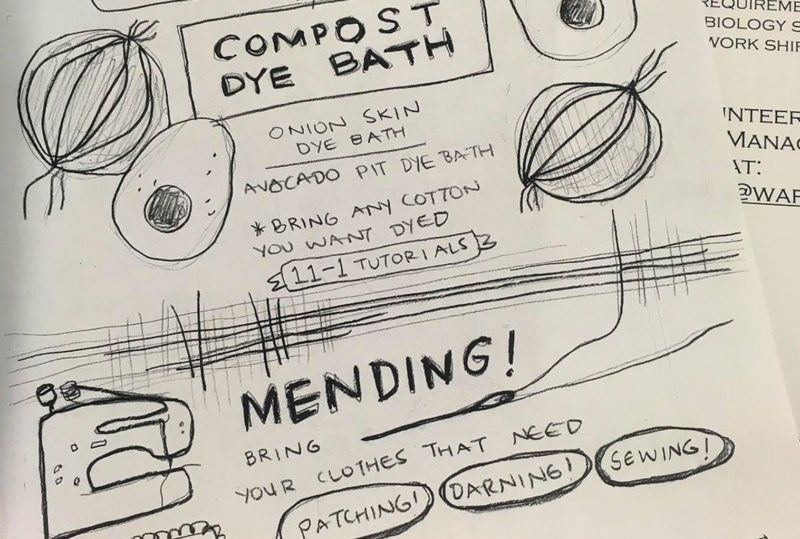 COMPOST
DYE BATH
ONION SKIN
DYE BATH
AVOCADO PIT DYE BATH
* BRING ANY COTTON
YOU WANT DYED
11-1 TUTORIALS
MENDING!
BRING
YOUR CLOTHES THAT NEED
PATCHING! DARNING! SEWING!
BIOLOGY S
WORK SHIF
AT: